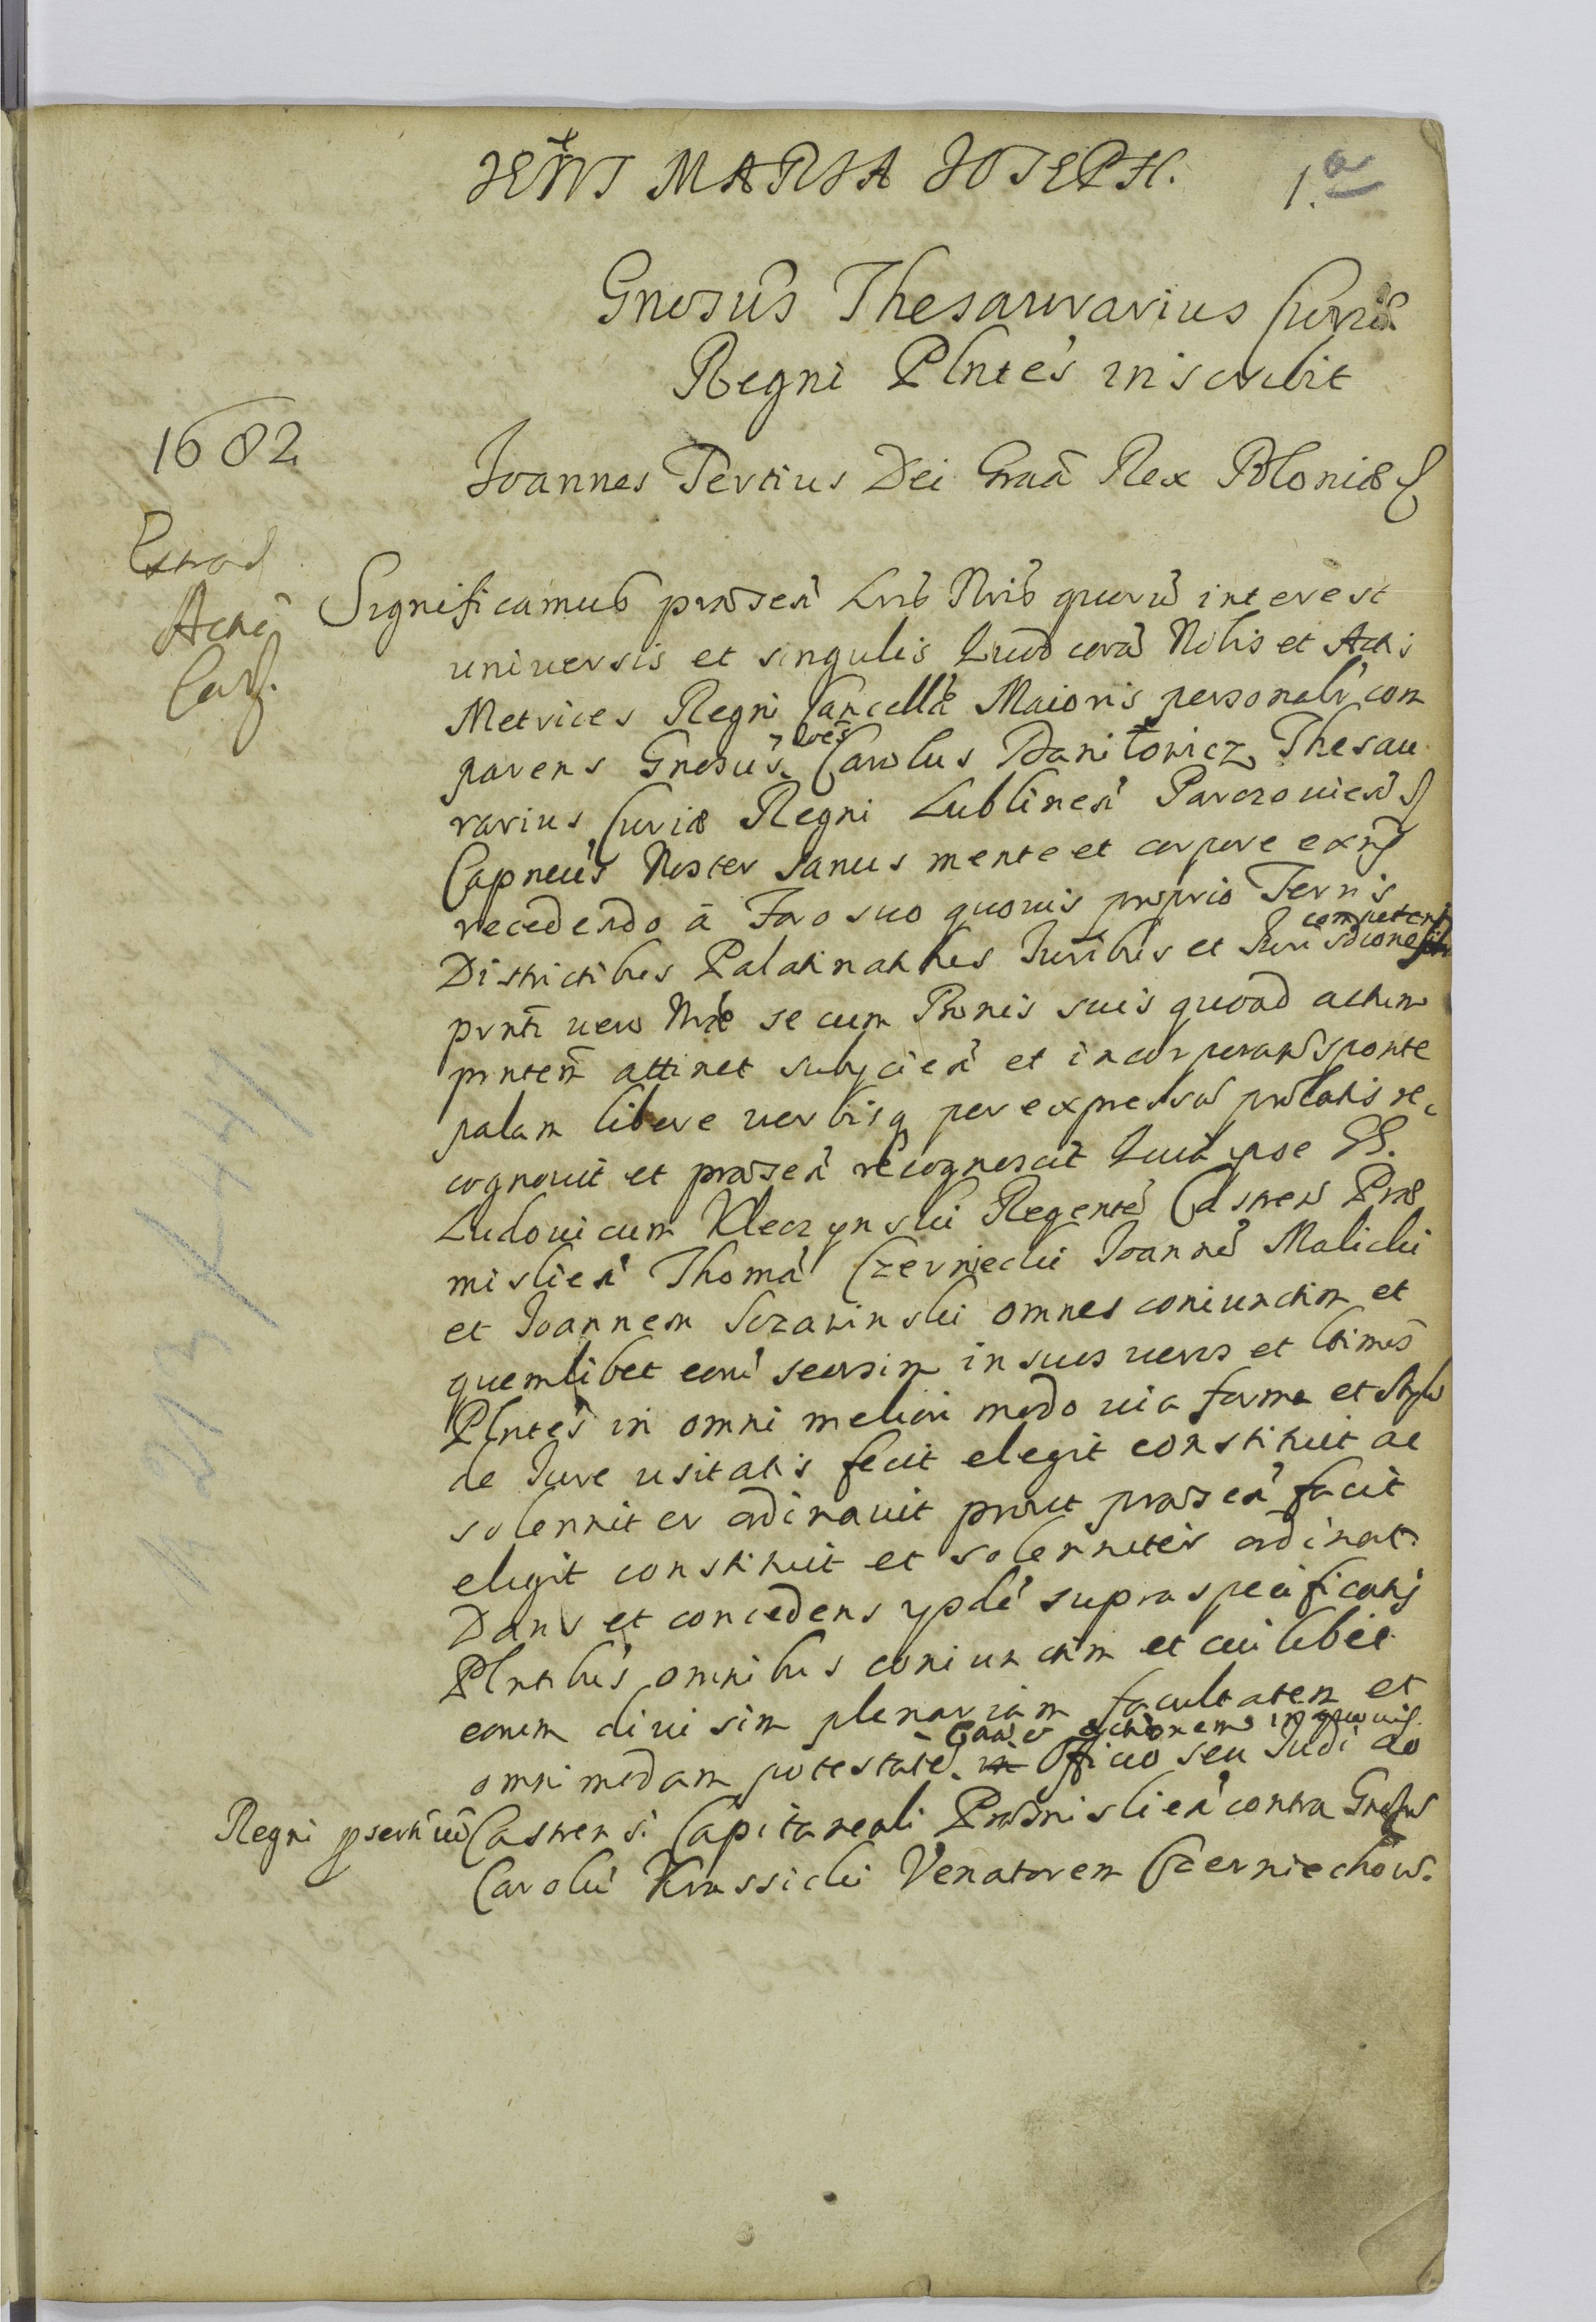 JESUS MARIA JOSEPH.
1.a
Gnosus Thesaurarius Curiæ
Regni Plntes inscribit
1682
Joannes Tertius Dei Graã Rex Poloniæ
Actic
Significamus præsen Lris Nris quorũ interest
universis et singulis Quod corã Nobis et Actis
Metrices Regni Cancellæ Maioris personalr com
parens Gnosus Carolus Daniłowicz Thesau
rarius Curiæ Regni Lublinen Parczouien
Capneus Noster sanus mente et corpore exñs
recedendo á Foro suo quouis proprio Terris
competent
Districtibus Palatinatibus Juribus et Jurisdicone
prnti uero Nræ se cum Bonis suis quoad actum
prntem attinet subycien et incorporans sponte
palam libere uerbisq per expressum prolatis re
cognouit et præsen recognoscit Quia ipse GG.
Ludouicum Kleczynski Regentẽ Castren Præ
mislien Thomã Czerniecki Joannẽ Malicki
et Joannem Sczawinski omnes coniunctim et
quemlibet eorũ seorsim in suos ueros et ltimos
Plntes in omni meliori modo uia forma et stylo
de Jure usitatis fecit elegit constituit ac
solenniter ordinauit prout præsen facit
elegit constituit et solenniter ordinat
Dans et concedens ypde supraspecificatis
Plntibus omnibus coniunctim et cuilibet
eorum diuisim plenariam facultatem et
actionem in quouis
omnimodam potestatẽ in Officio seu Judi do
Regni psertim Castrensi Capitaneali Præmislien contra Gnosum
Carolũ Krassicki Venatorem Czerniechow.
12 213/K441